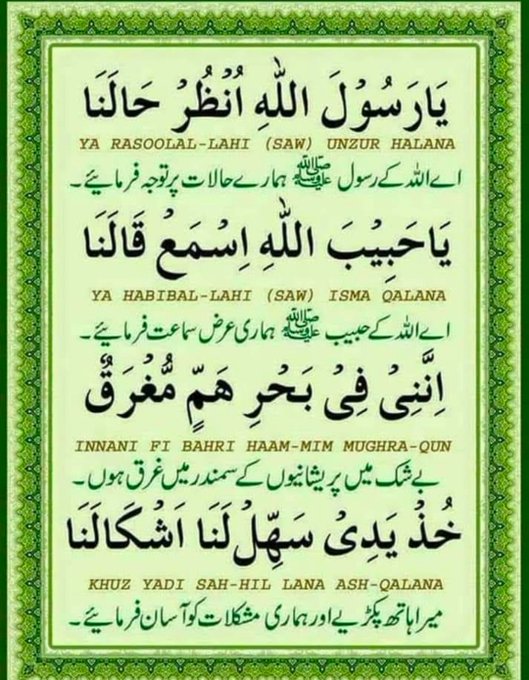 يَارَسُوْلَ اللهِ اُنْظُرْ حَالَنَا
YA RASOOLAL-LAHI (SAW) UNZUR HALANA
اے اللہ کے رسول ﷺ ہمارے حالات پر توجہ فرمائیے۔
يَاحَبِيْبَ اللهِ اِسْمَعْ قَالَنَا
YA HABIBAL-LAHI (SAW) ISMA QALANA
اے اللہ کے حبیب ﷺ ہماری عرض سماعت فرمائیے۔
اِنَّنِىْ فِىْ بَحْرِ هَمٍّ مُّغْرَقٌ
INNANI FI BAHRI HAAM-MIM MUGHRA-QUN
بے شک میں پریشانیوں کے سمندر میں غرق ہوں۔
خُذْ يَدِىْ سَهِّلْ لَنَا اَشْكَالَنَا
KHUZ YADI SAH-HIL LANA ASH-QALANA
میرا ہاتھ پکڑیے اور ہماری مشکلات کو آسان فرمائیے۔